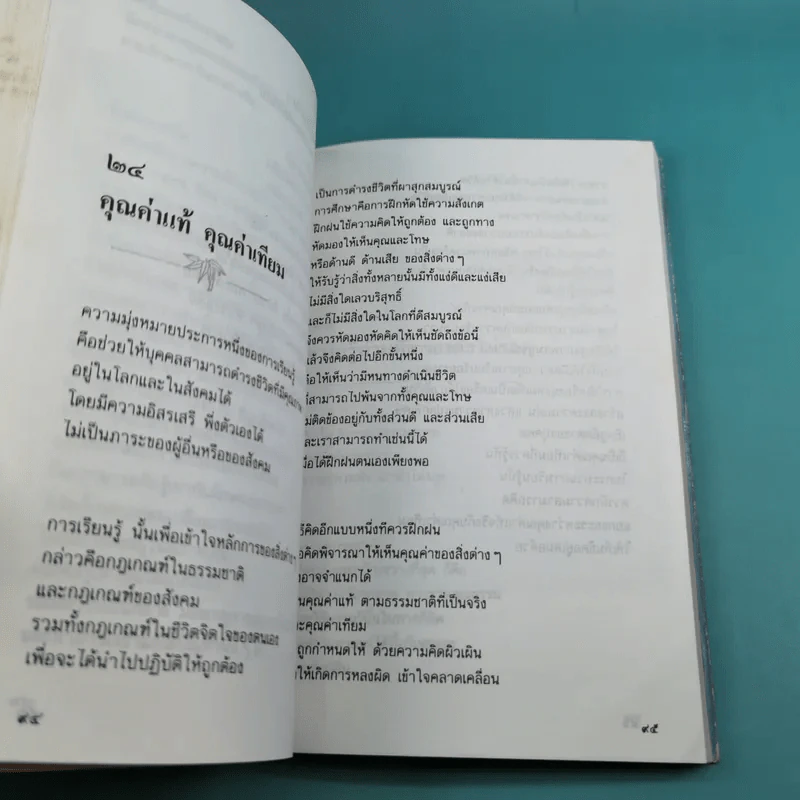 ๒๔
คุณค่าแท้ คุณค่าเทียม
ความมุ่งหมายประการหนึ่งของการเรียนรู้
คือช่วยให้บุคคลสามารถดำรงชีวิตที่มี
อยู่ในโลกและในสังคมได้
โดยมีความอิสรเสรี พึ่งตัวเองได้
ไม่เป็นภาระของผู้อื่นหรือของสังคม
การเรียนรู้ นั้นเพื่อเข้าใจหลักการของสิ่งต่างๆ
กล่าวคือกฎเกณฑ์ในธรรมชาติ
และกฎเกณฑ์ของสังคม
รวมทั้งกฎเกณฑ์ในชีวิตจิตใจของตนเอง
เพื่อจะได้นำไปปฏิบัติให้ถูกต้อง
๙๔
เป็นการดำรงชีวิตที่ผาสุกสมบูรณ์
การศึกษาคือการฝึกหัดใช้ความสังเกต
ฝึกฝนใช้ความคิดให้ถูกต้อง และถูกทาง
หัดมองให้เห็นคุณและโทษ
หรือด้านดี ด้านเสีย ของสิ่งต่าง ๆ
ให้รับรู้ว่าสิ่งทั้งหลายนั้นมีทั้งแง่ดีและแง่เสีย
ไม่มีสิ่งใดเลวบริสุทธิ์
และก็ไม่มีสิ่งใดในโลกที่ดีสมบูรณ์
จึงควรหัดมองหัดคิดให้เห็นชัดถึงข้อนี้
แล้วจึงคิดต่อไปอีกขั้นหนึ่ง
ให้เห็นว่ามีหนทางดำเนินชีวิต
สามารถไปพ้นจากทั้งคุณและโทษ
ไม่ติดข้องอยู่กับทั้งส่วนดี และส่วนเสีย
และเราสามารถทำเช่นนี้ได้
ได้ฝึกฝนตนเองเพียงพอ
คิดอีกแบบหนึ่งที่ควรฝึกฝน
คิดพิจารณาให้เห็นคุณค่าของสิ่งต่าง ๆ
อาจจำแนกได้
คุณค่าแท้ ตามธรรมชาติที่เป็นจริง
คุณค่าเทียม
ถูกกำหนดให้ ด้วยความคิดผิวเผิน
ให้เกิดการหลงผิด เข้าใจคลาดเคลื่อน
๙๕